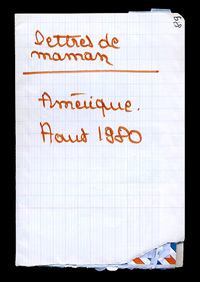 89
Lettres de
maman
Amérique.
Aout 1980